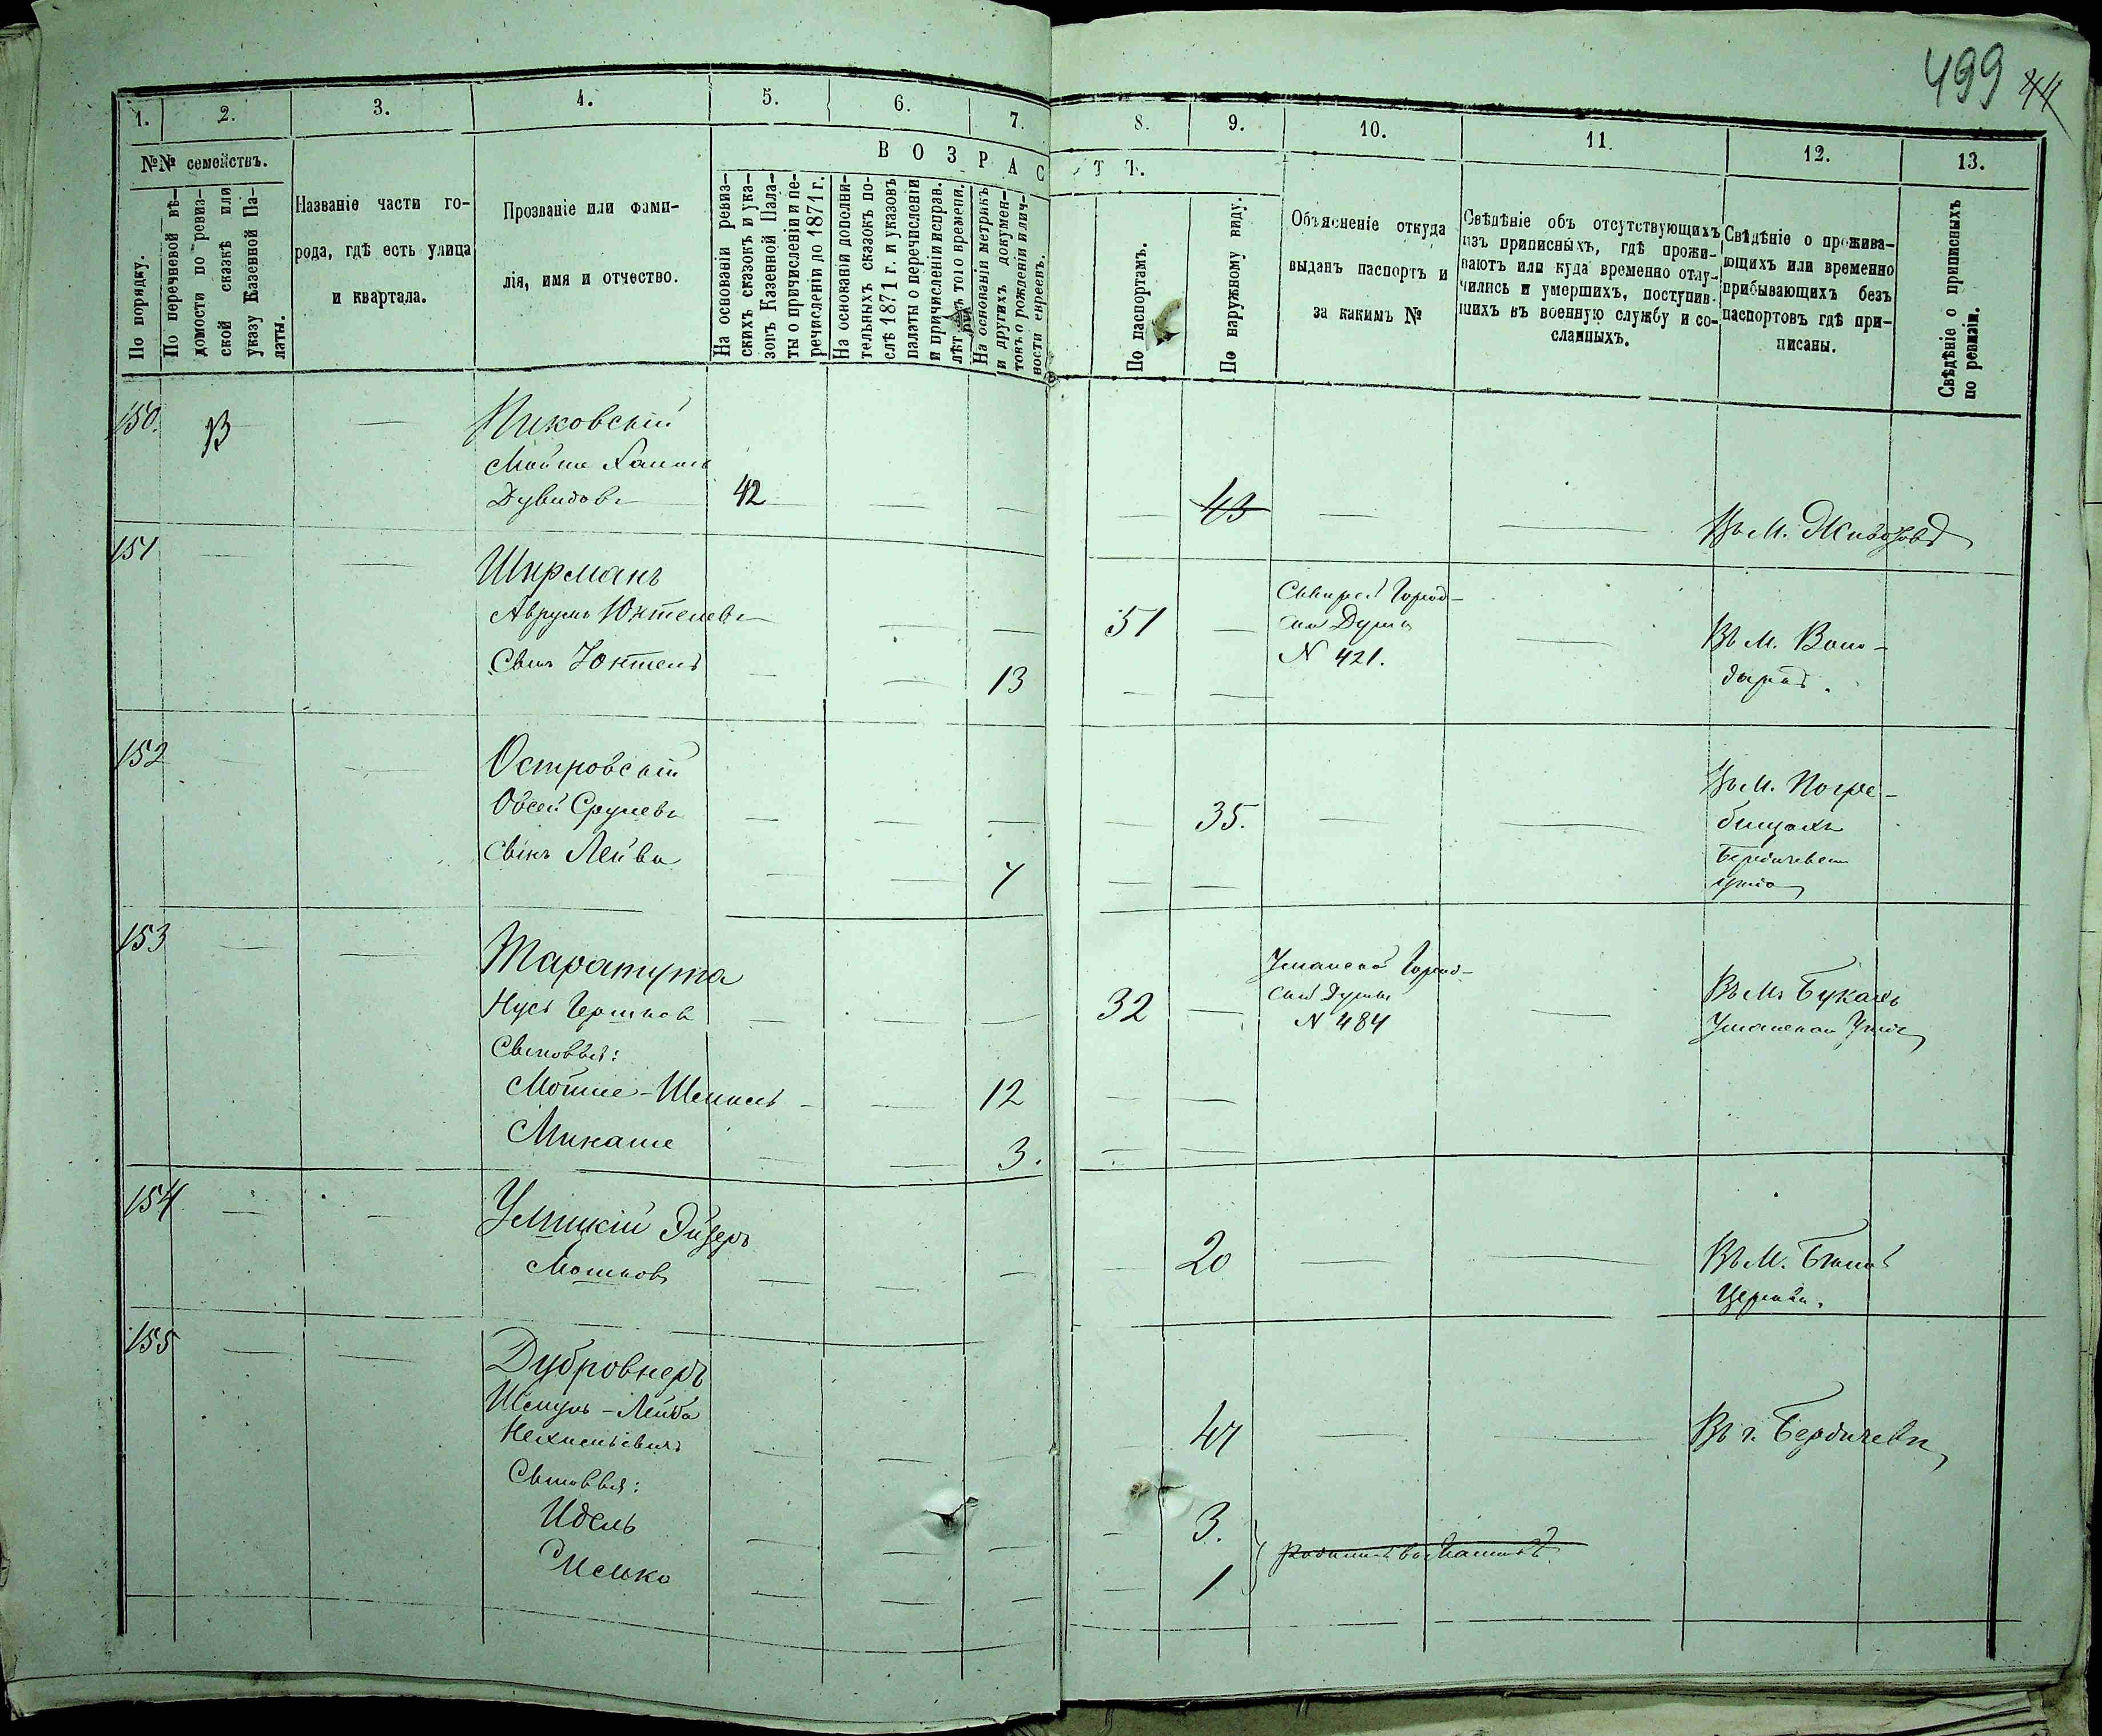 499 44
1. 2. 3. 4. 5. 6. 7. 8. 9. 10. 11. 12. 13.
№№ семействъ.
По порядку.
По перечневой вѣ-
домости по ревиз-
ской сказкѣ или
указу Казенной Па-
латы.
Названіе части го-
рода, гдѣ есть улица
и квартала.
Прозваніе или фами-
лія, имя и отчество.
ВОЗРАСТЪ.
На основаніи ревиз-
скихъ сказокъ и ука-
зовъ Казенной Пала-
ты о причисленіи и пе-
речисленіи до 1871 г.
На основаніи дополни-
тельныхъ сказокъ по-
слѣ 1871 г. и указовъ
палаты о перечисленіи
и причисленіи исправ.
лѣтъ того времени.
На основаніи метрикъ
и другихъ докумен-
товъ о рожденіи и лич-
ности евреевъ.
По паспортамъ.
По наружному виду.
Объясненіе откуда
выданъ паспортъ и
за какимъ №
Свѣдѣніе объ отсутствующихъ
изъ приписныхъ, гдѣ прожи-
ваютъ или куда временно отлу-
чились и умершихъ, поступив-
шихъ въ военную службу и со-
сланныхъ.
Свѣдѣніе о прожива-
ющихъ или временно
прибывающихъ безъ
паспортовъ гдѣ при-
писаны.
Свѣдѣніе о приписныхъ
по ревизіи.
150. Пиковскій
Мойше
Дувидовъ 42 43 Въ М. Животовѣ
151 Ширманъ
Аврумъ Юхтелевъ 51 Сквирск. Город-
ской Думы
N 421. Въ М. Воло-
даркѣ.
Сынъ Юхтель 13
152 Островскій
Овсей Срулевъ 35. Въ М. Погре-
бищахъ
Бердичевск.
уѣзда
Сынъ Лейба 7
153 Таратута
Нусь Гершковъ 32 Уманской Город-
ской Думы
N 484 Въ М. Букахъ
Уманскаго Уѣзда
Сыновья:
Мойше-Шмиль 12
Микаше 3.
154 Улицкій Эйзеръ
Мошковъ 20 Въ М. Бѣлой
Церкви.
155 Дубровнеръ
Шмуль-Лейба
47 Въ г. Бердичевѣ
Сыновья:
Идель 3.
Ицько 1